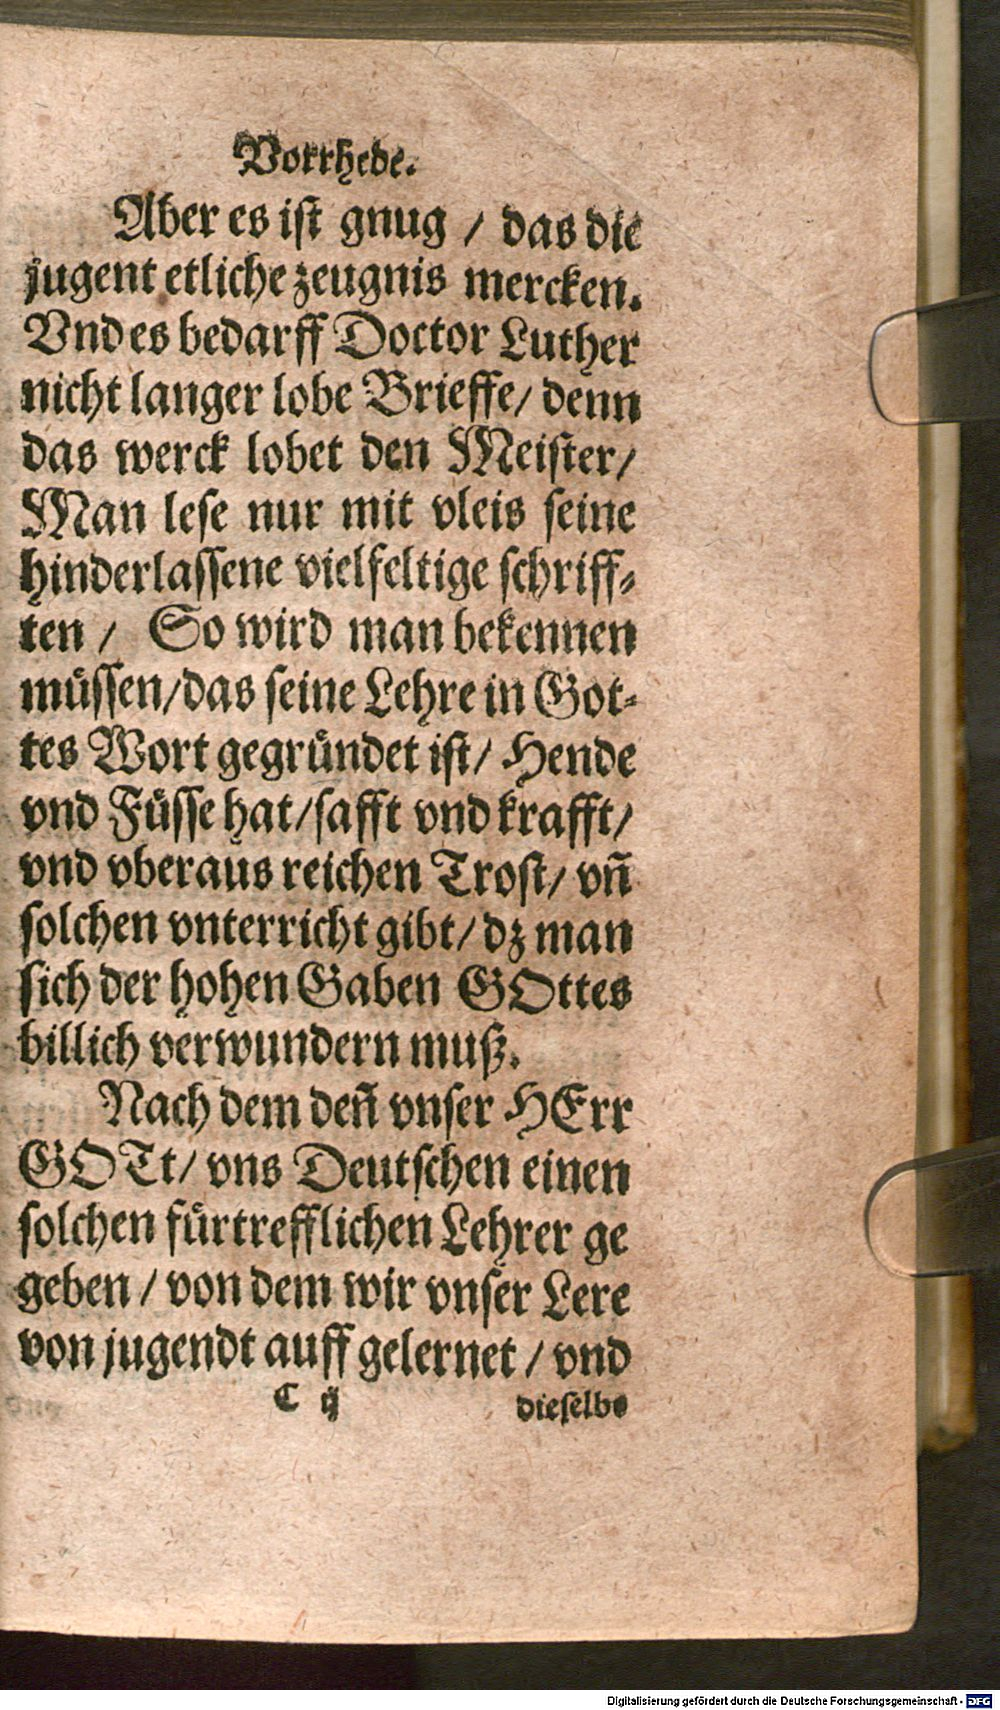 Vorrhede.
Aber es ist gnug / das die
jugent etliche zeugnis mercken.
Vnd es bedarff Doctor Luther
nicht langer lobe Brieffe/ denn
das werck lobet den Meister/
Man lese nur mit vleis seine
hinderlassene vielfeltige schriff-
ten / So wird man bekennen
müssen/das seine Lehre in Got-
tes Wort gegründet ist/ Hende
vnd Füsse hat/safft vnd krafft/
vnd vberaus reichen Trost/ vñ
solchen vnterricht gibt/ dz man
sich der hohen Gaben GOttes
billich verwundern muß.
Nach dem deñ vnser HErr
GOTt/ vns Deutschen einen
solchen fürtrefflichen Lehrer ge
geben / von dem wir vnser Lere
von jugendt auff gelernet / vnd
C ij dieselbe
Digitalisierung gefördert durch die Deutsche Forschungsgemeinschaft - DFG